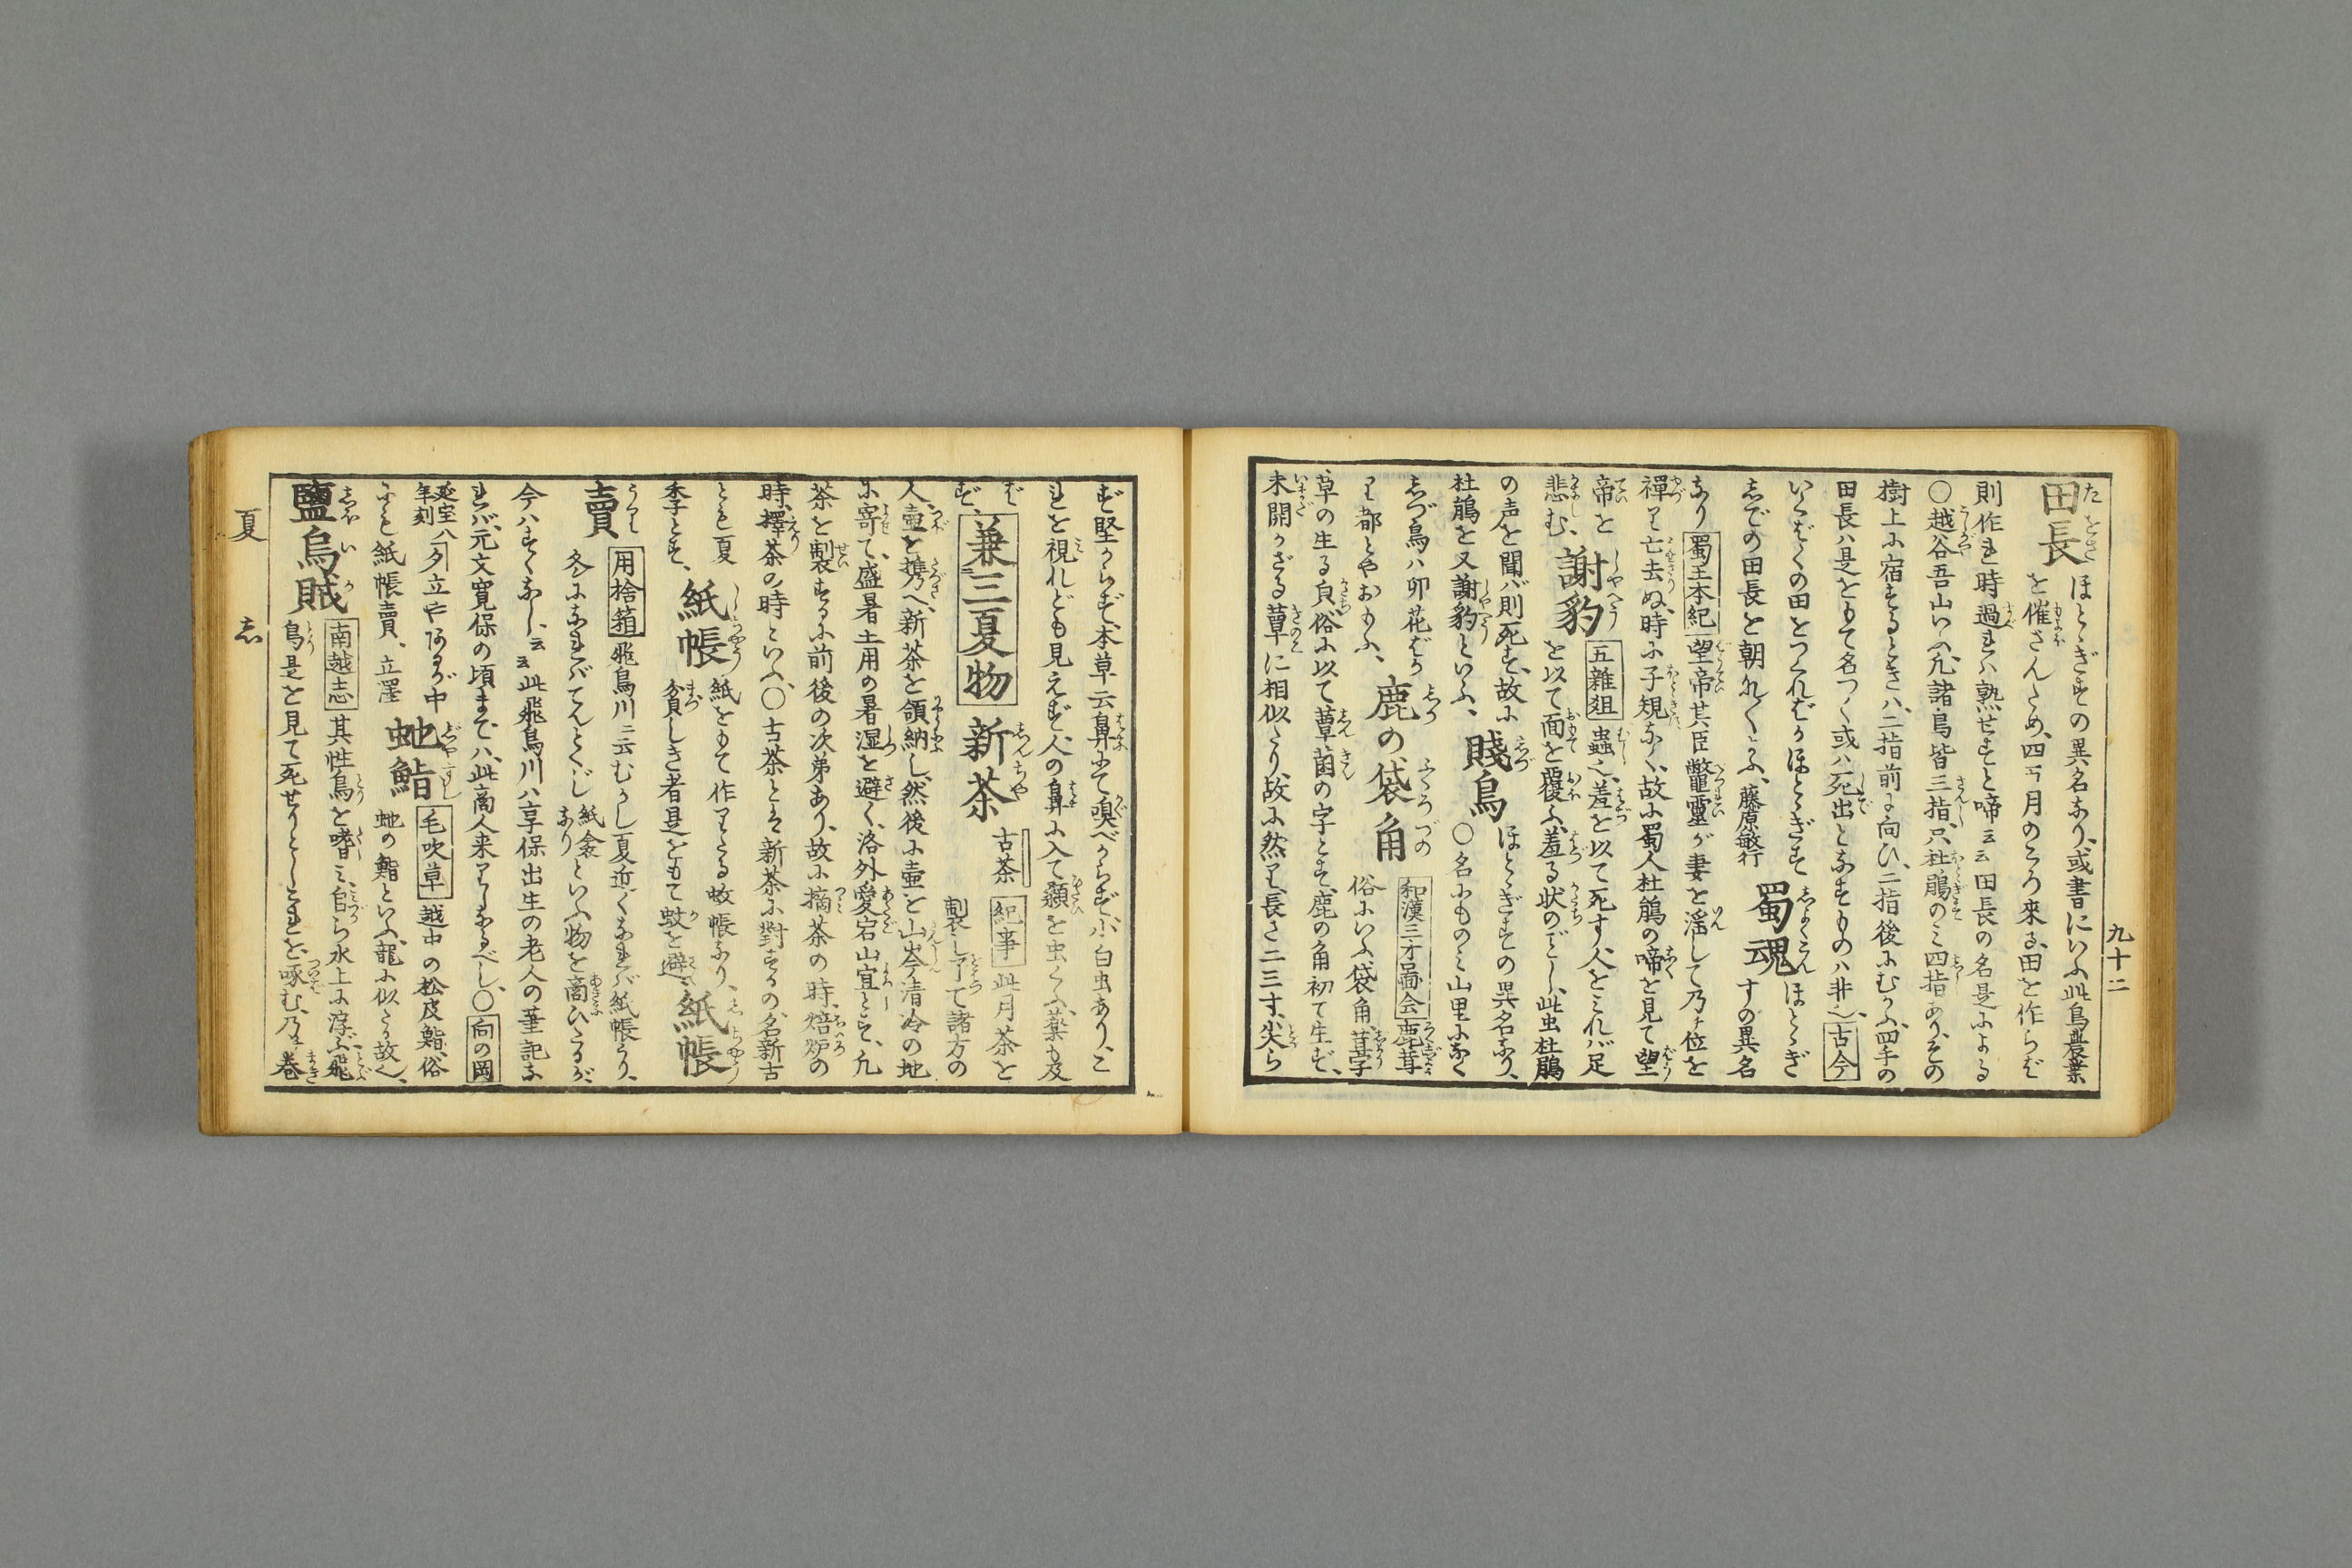 九十二
田長 ほとゝぎすの異名なり、或書にいふ此鳥農業
を催さんため、四五月のころ来る、田を作らば
則作れ時過れハ熟せずと啼云云田長の名是による
○越谷吾山いへ、凡諸鳥皆三指、只杜鵑のミ四指あり、その
樹上に宿するときハ、二指前に向ひ、二指後にむかふ、四手の
田長ハ是をもて名つく或ハ死出となすものハ非也、古今
いくばくの田をつくればかほとゝぎす
しでの田長を朝な〱よぶ、藤原敏行
蜀魂 ほとゝぎ
すの異名
なり 蜀王本紀 望帝其臣鼈靈が妻を淫して乃チ位を
禪り亡去ぬ、時に子規なく、故に蜀人杜鵑の啼を見て望
帝を
悲む、
謝豹 五雜爼 蟲也、羞を以て死す、人をミれバ足
を以て面を覆ふ、羞る状のごとし、此虫杜鵑
の声を聞バ則死す、故に
杜鵑を又謝豹といふ、
賤鳥 ほとゝぎすの異名なり、
○名にものミ山里になく
しづ鳥ハ卯花ばか
り都とやおもふ、
鹿の袋角 和漢三才圖会 鹿茸
俗にいふ袋角茸字
草の生る㒵俗に以て蕈菌の字とす、鹿の角初て生ず、
未開かざる蕈に相似たり、故に然り、長さ二三寸、尖ら
ず堅からず、本草云鼻にて嗅べからず、小白虫あり、こ
れを視れども見えず、人の鼻に入て顙を虫くふ、薬も及
ばず、
兼三夏物
新茶 古茶 紀事 此月茶を
製して諸方の
人、壷を携へ、新茶を領納し、然後に壷を山岑清冷の地
に寄て、盛暑土用の暑湿を避く、洛外愛宕山宜とす、凡
茶を製するに前後の次第あり、故に摘茶の時、焙炉の
時、擇茶の時といふ、○古茶とハ新茶に對するの名新古
とも夏
季とす、
紙帳 紙をもて作りたる蚊帳なり、
貧しき者是をもて蚊を避く
紙帳
賣 用捨箱 飛鳥川ニ云むかし夏近くなれバ紙帳うり、
冬になれバてんとくじ紙衾なりといふ物を商ひたるが、
今ハすくなし、云云此飛鳥川ハ享保出生の老人の筆記な
れバ、元文寛保の頃までハ、此商人来りしなるべし、○向の岡
延宝八年刻 夕立や阿まが中
にも紙帳賣、立澤
虵鮨 毛吹草 越中の松皮鮨、俗
虵の鮨といふ、龍に似たる故也、
鹽烏賊 南越志 其性鳥を嗜ミ、自ら水上に浮ぶ、飛
鳥是を見て死せりとしこれを、啄む、乃チ巻
夏
志